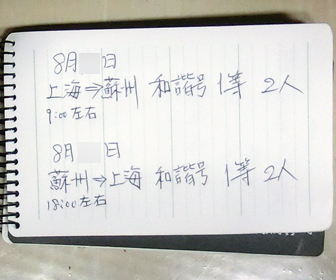 8月 日
上海⇒蘇州 和諧号 1等 2人
9:00左右
8月 日
蘇州⇒上海 和諧号 1等 2人
18:00左右